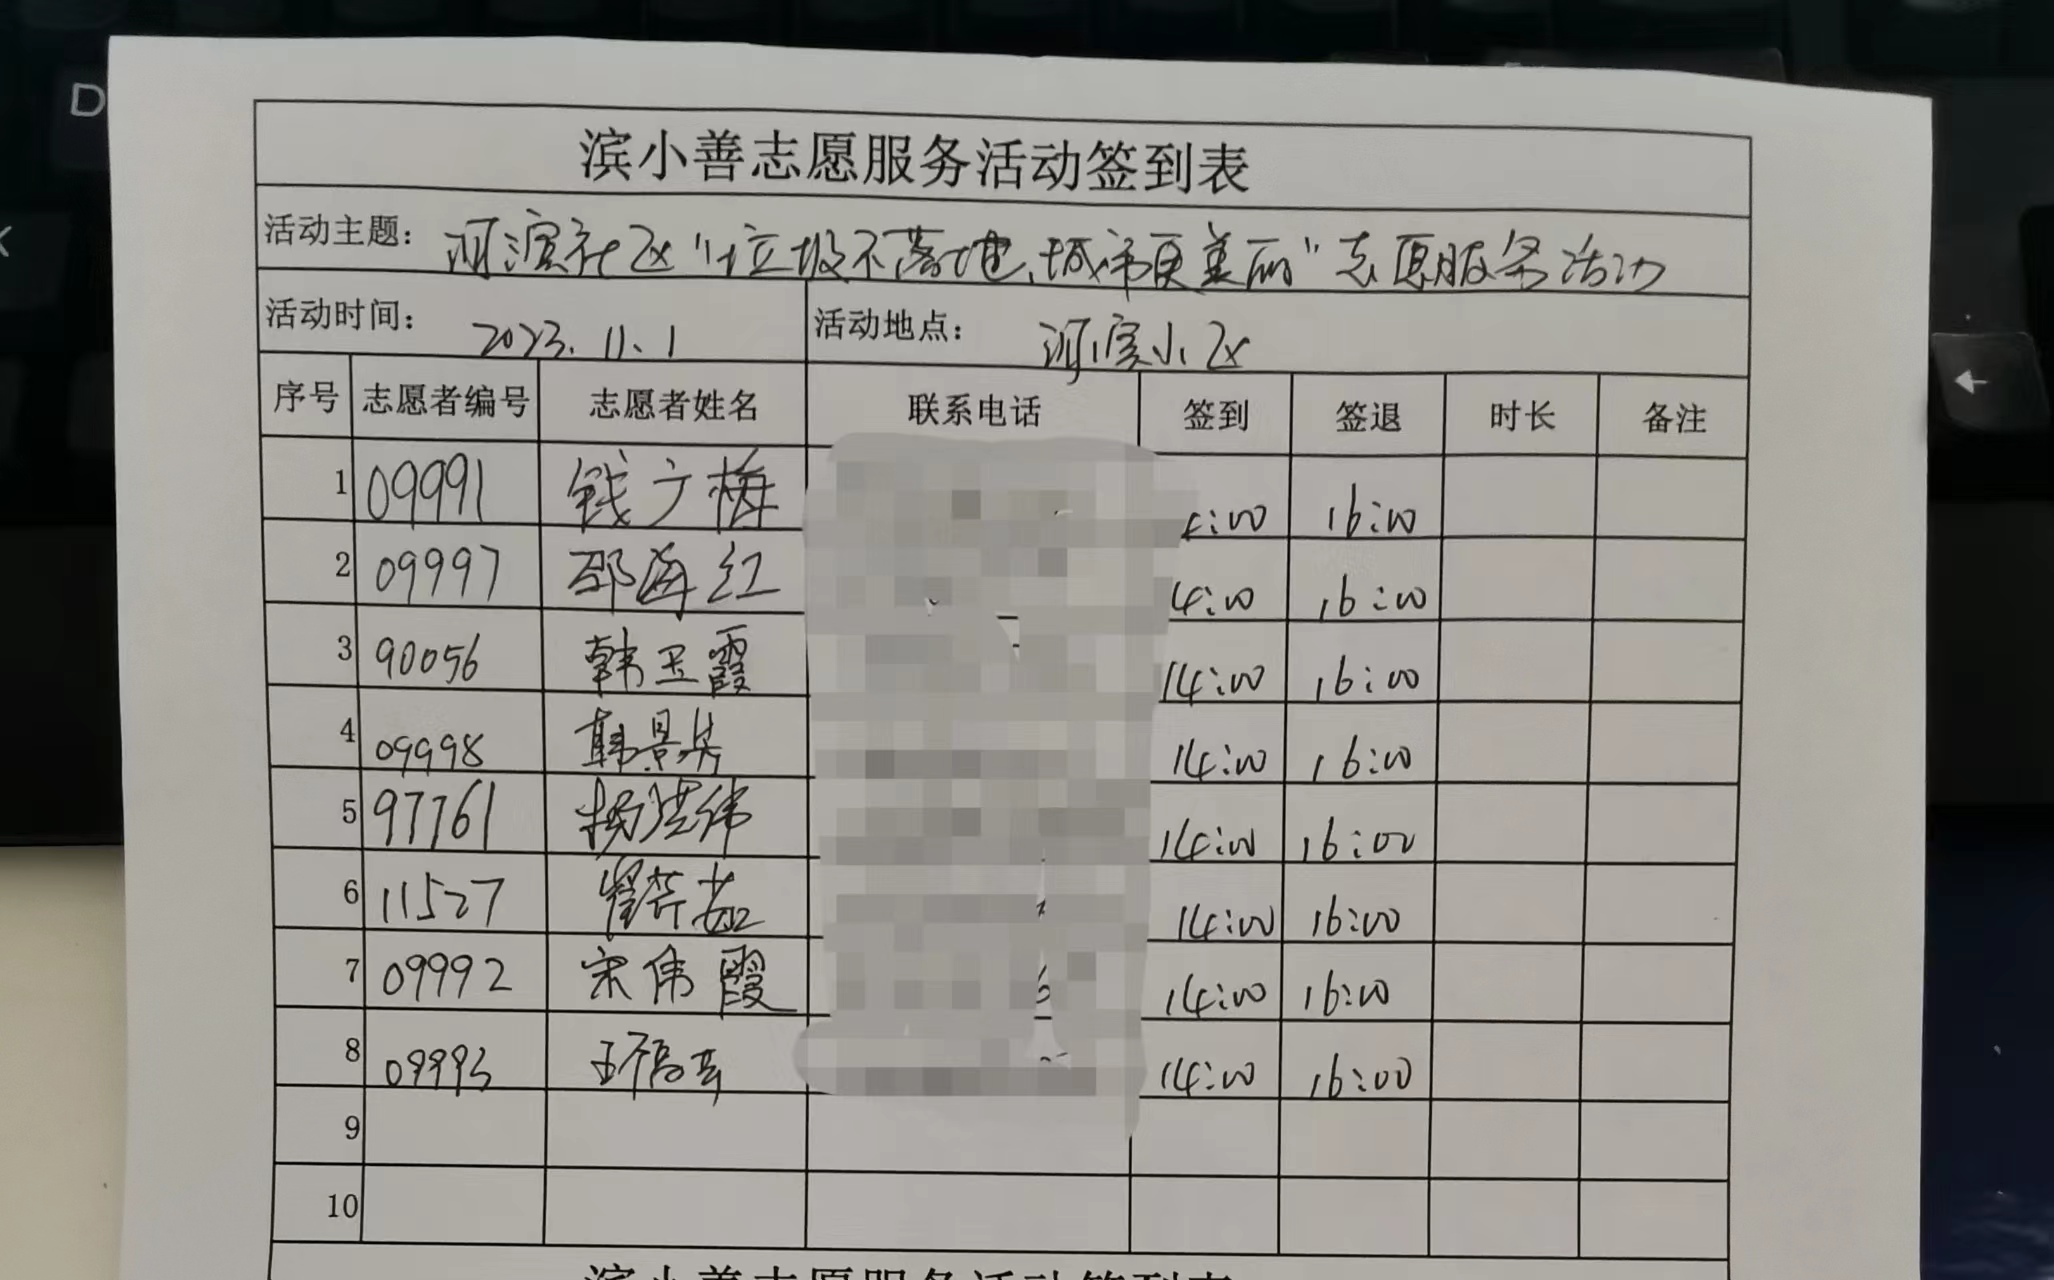 滨小善志愿服务活动签到表
活动主题： 河滨社区"垃圾不落地、城市更美丽"志愿服务活动
活动时间： 2023.11.1 活动地点： 河滨小区
序号 志愿者编号 志愿者姓名 联系电话 签到 签退 时长 备注
1 09991 钱广梅 4:00 16:00
2 09997 邵海红 14:00 16:00
3 90056 韩卫霞 14:00 16:00
4 09998 韩景 14:00 16:00
5 97761 杨洪伟 14:00 16:00
6 11527 14:00 16:00
7 09992 宋伟霞 14:00 16:00
8 09993 王福云 14:00 16:00
9
10
滨小善志愿服务活动签到表
D